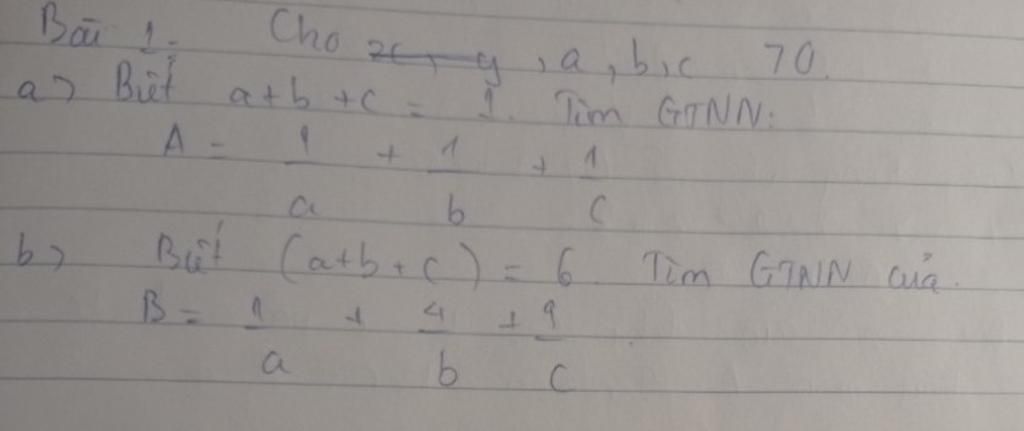 Bài 1: Cho x, y, a, b, c > 0.
a) Biết a+b+c = 1. Tìm GTNN:
A = 1/a + 1/b + 1/c
b) Biết (a+b+c) = 6 Tìm GTNN của.
B = 1/a + 4/b + 9/c